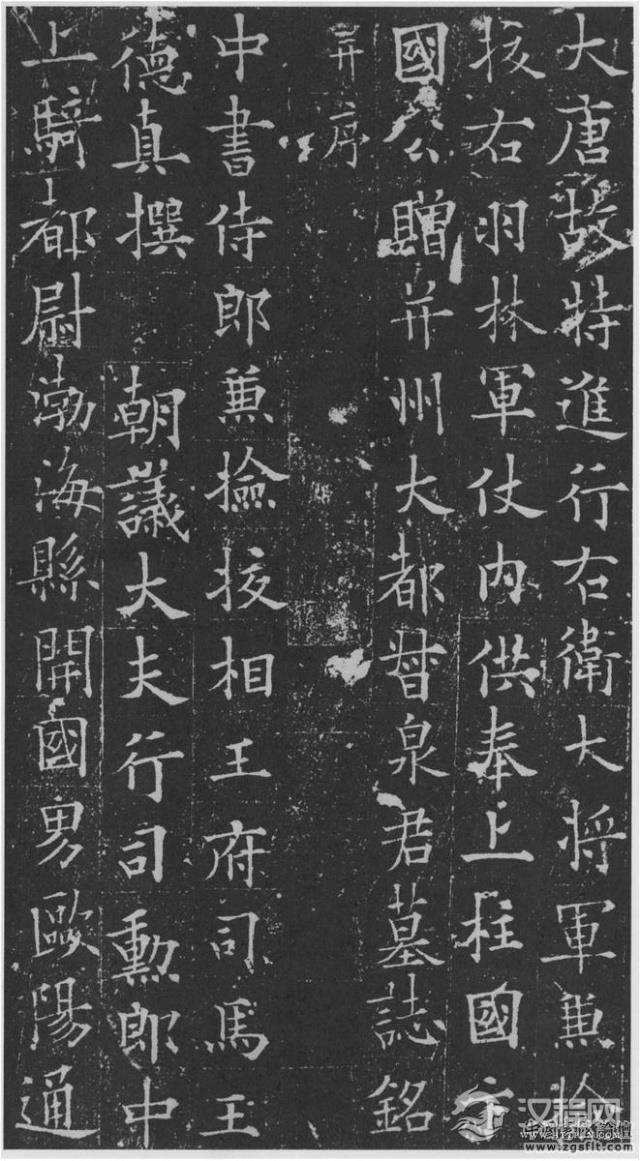 大唐故特進行右衛大將軍兼撿
挍右羽林軍仗內供奉上柱國卞
國公贈并州大都督泉君墓誌銘
并序
中書侍郎兼撿挍相王府司馬王
德真撰 朝議大夫行司勳郎中
上騎都尉渤海縣開國男歐陽通
汉程网
www.zgsflt.com